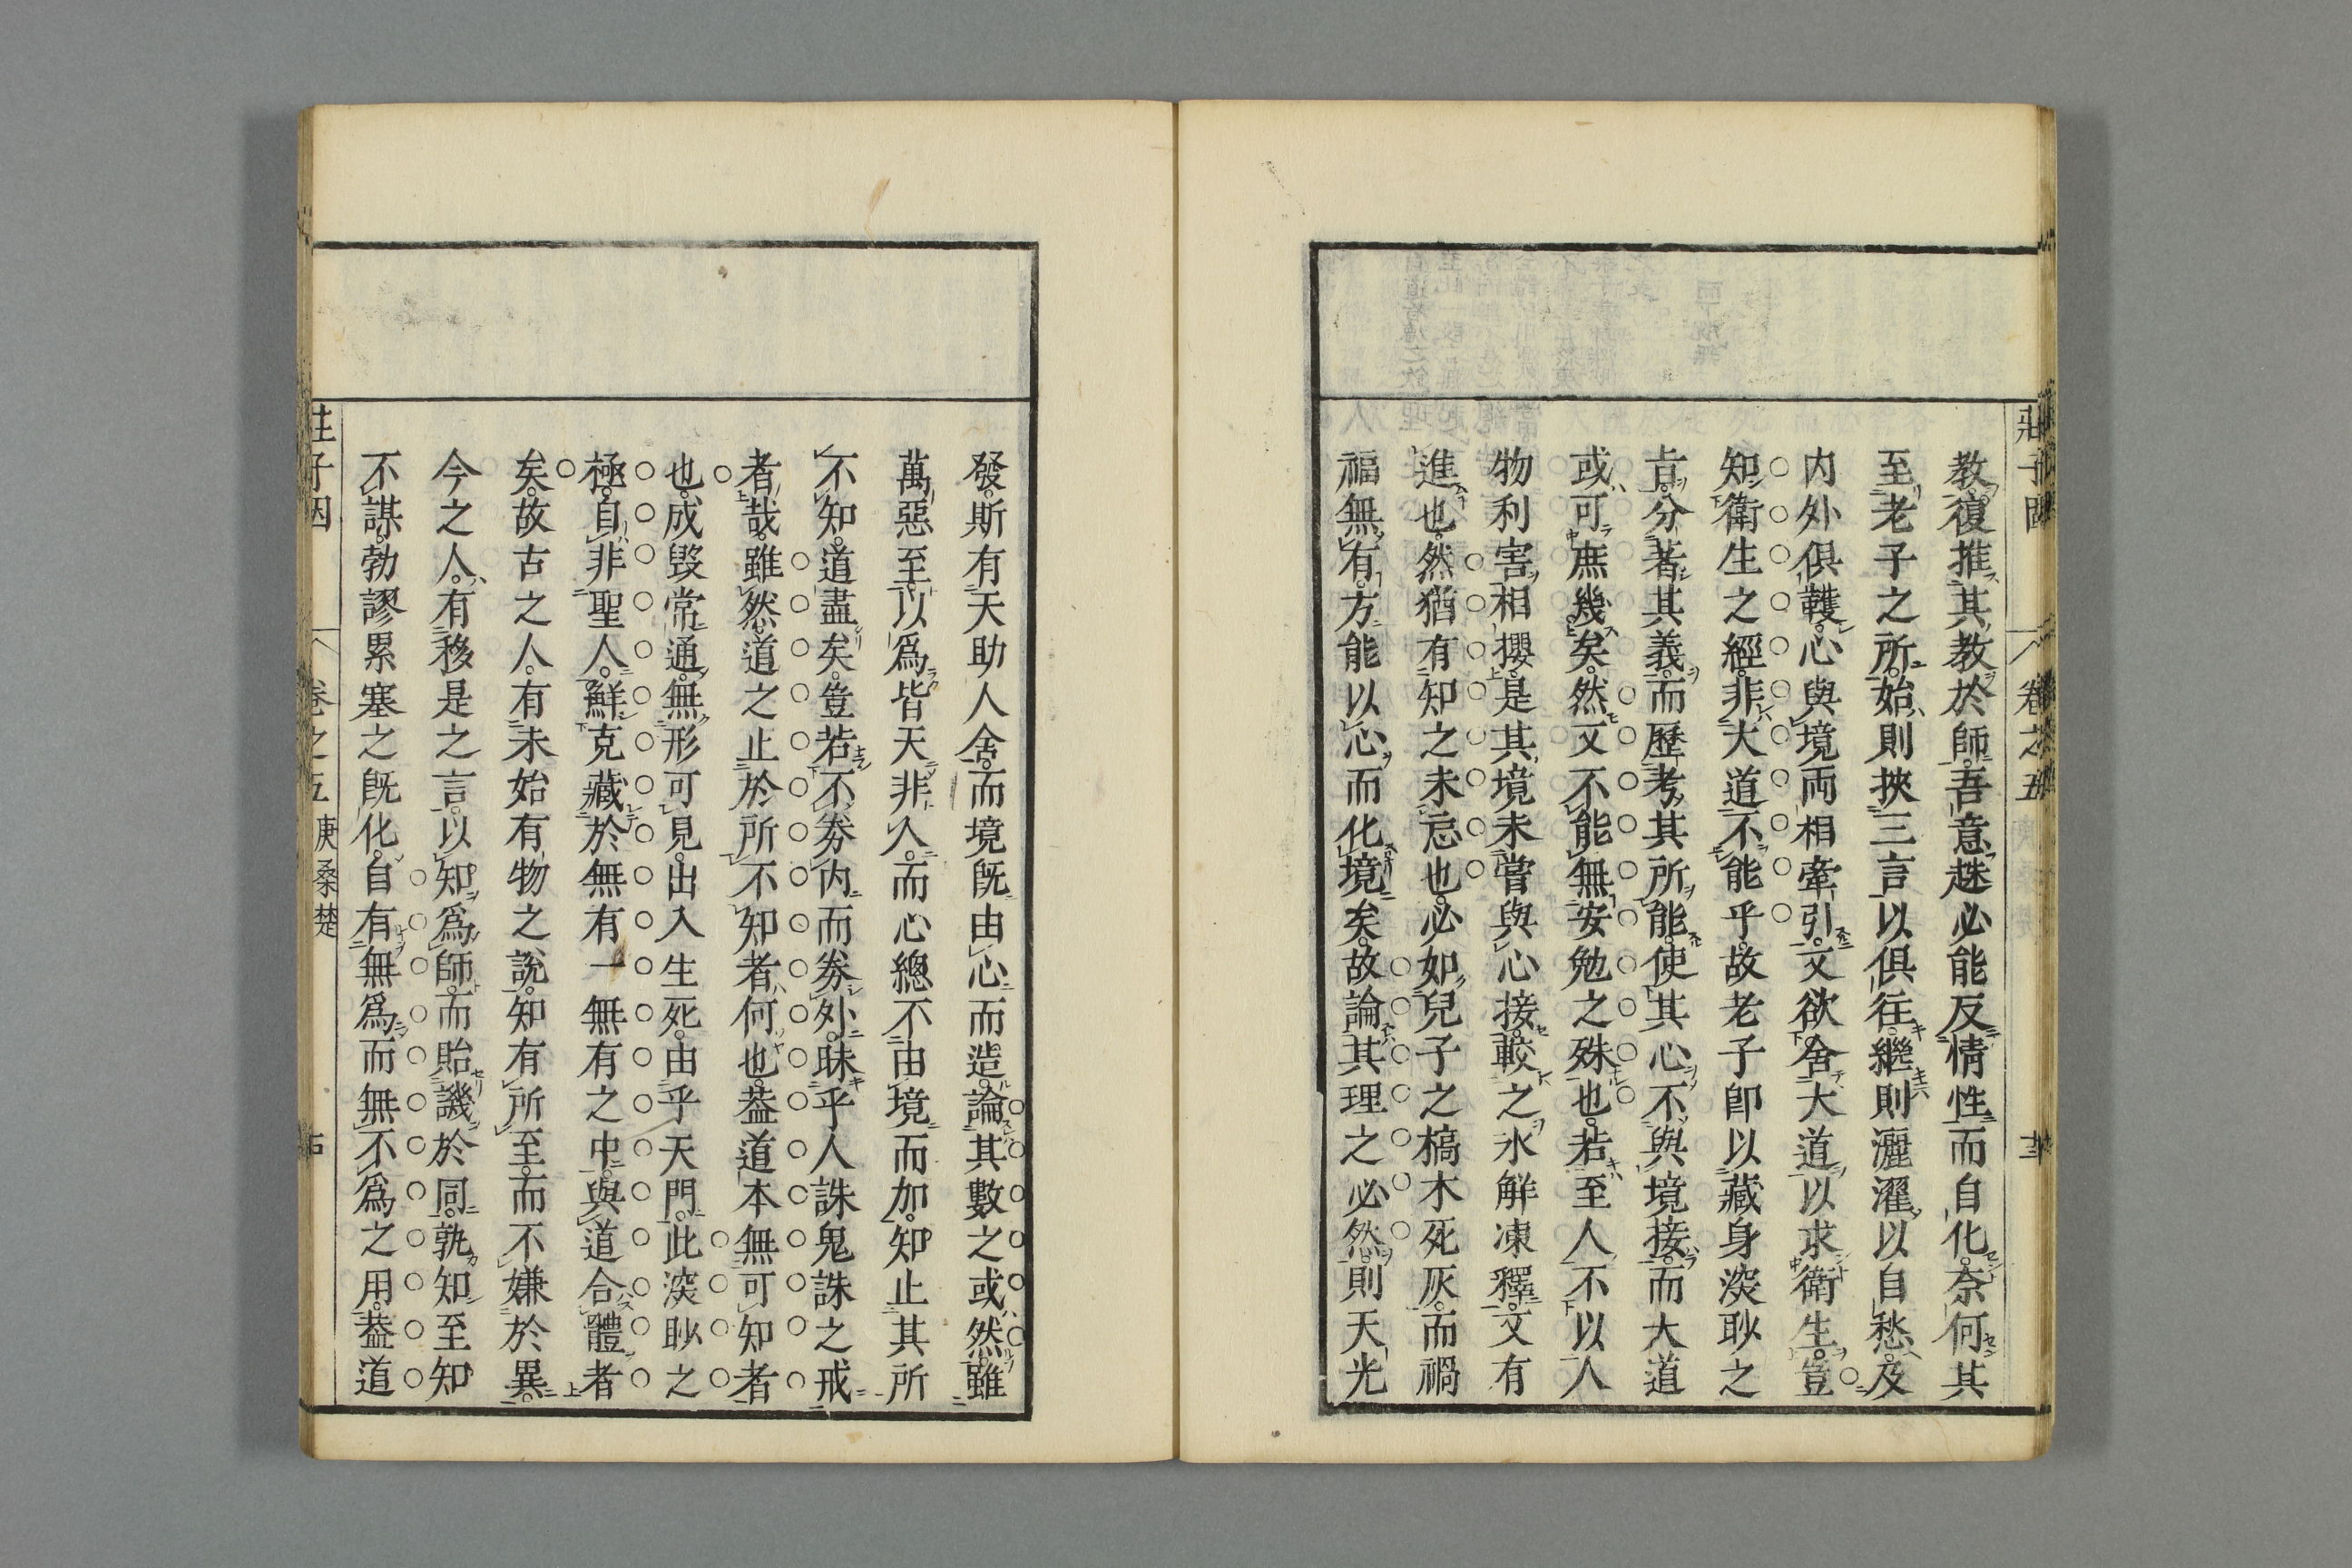 教復推其教於師吾意趎必能反情性而自化奈何其
至老子之所始則挾三言以俱往繼則灑濯以自愁及
内外俱韄心與境兩相牽引又欲舍大道以求衛生豈
知衛生之經非大道不能乎故老子卽以藏身深眇之
㫖分著其義而歷考其所能使其心不與境接而大道
或可庶幾矣然又不能無安勉之殊也若至人不以人
物利害相攖是其境未嘗與心接較之氷解凍釋又有
進也然猶有知之未忘也必如兒子之槁木死灰而禍
福無有方能以心而化境矣故論其理之必然則天光
莊子因 卷之五
發斯有天助人舍而境既由心而造論其數之或然雖
萬惡至以爲皆天非人而心總不由境而加知止其所
不知道盡矣豈若不券内而券外昧乎人誅鬼誅之戒
者哉雖然道之止於所不知者何也葢道本無可知者
也成毁常通無形可見出入生死由乎天門此深眇之
極自非聖人鮮克藏於無有一無有之中與道合體者
矣故古之人有未始有物之說知有所至而不嫌於異
今之人有移是之言以知爲師而貽譏於同孰知至知
不謀勃謬累塞之既化自有無爲而無不爲之用葢道
莊子因 卷之五 庚桑楚